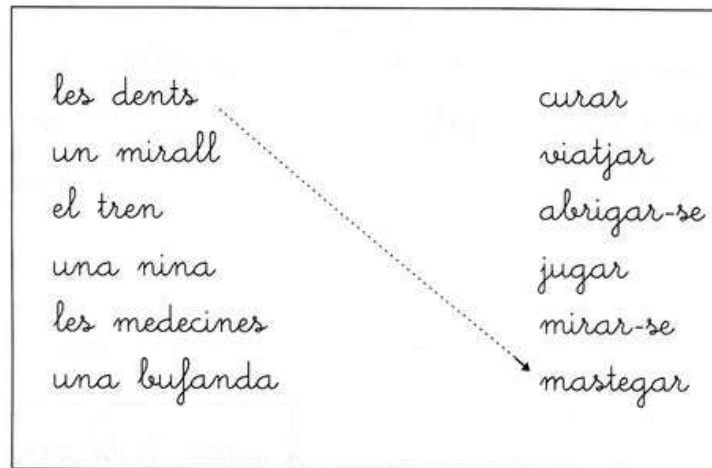 les dents
un mirall
el tren
una nina
les medecines
una bufanda
curar
viatjar
abrigar-se
jugar
mirar-se
mastegar